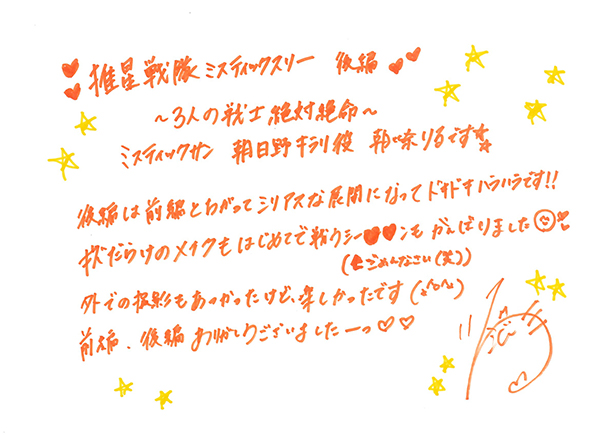 ♥♥推星戦隊ミスティックスリー 後編♥♥
～3人の戦士絶対絶命～
ミスティックサン 朝日野キラリ役 朝咲りるです☆
後編は前編とちがってシリアスな展開になってドキドキハラハラです!!
キズだらけのメイクもはじめてで戦うシー♥♥ンもがんばりました☺♥
(↑ごめんなさい(笑))
外での撮影もあつかったけど、楽しかったです(^o^)
前編、後編ありがとうございましたーっ♡♡